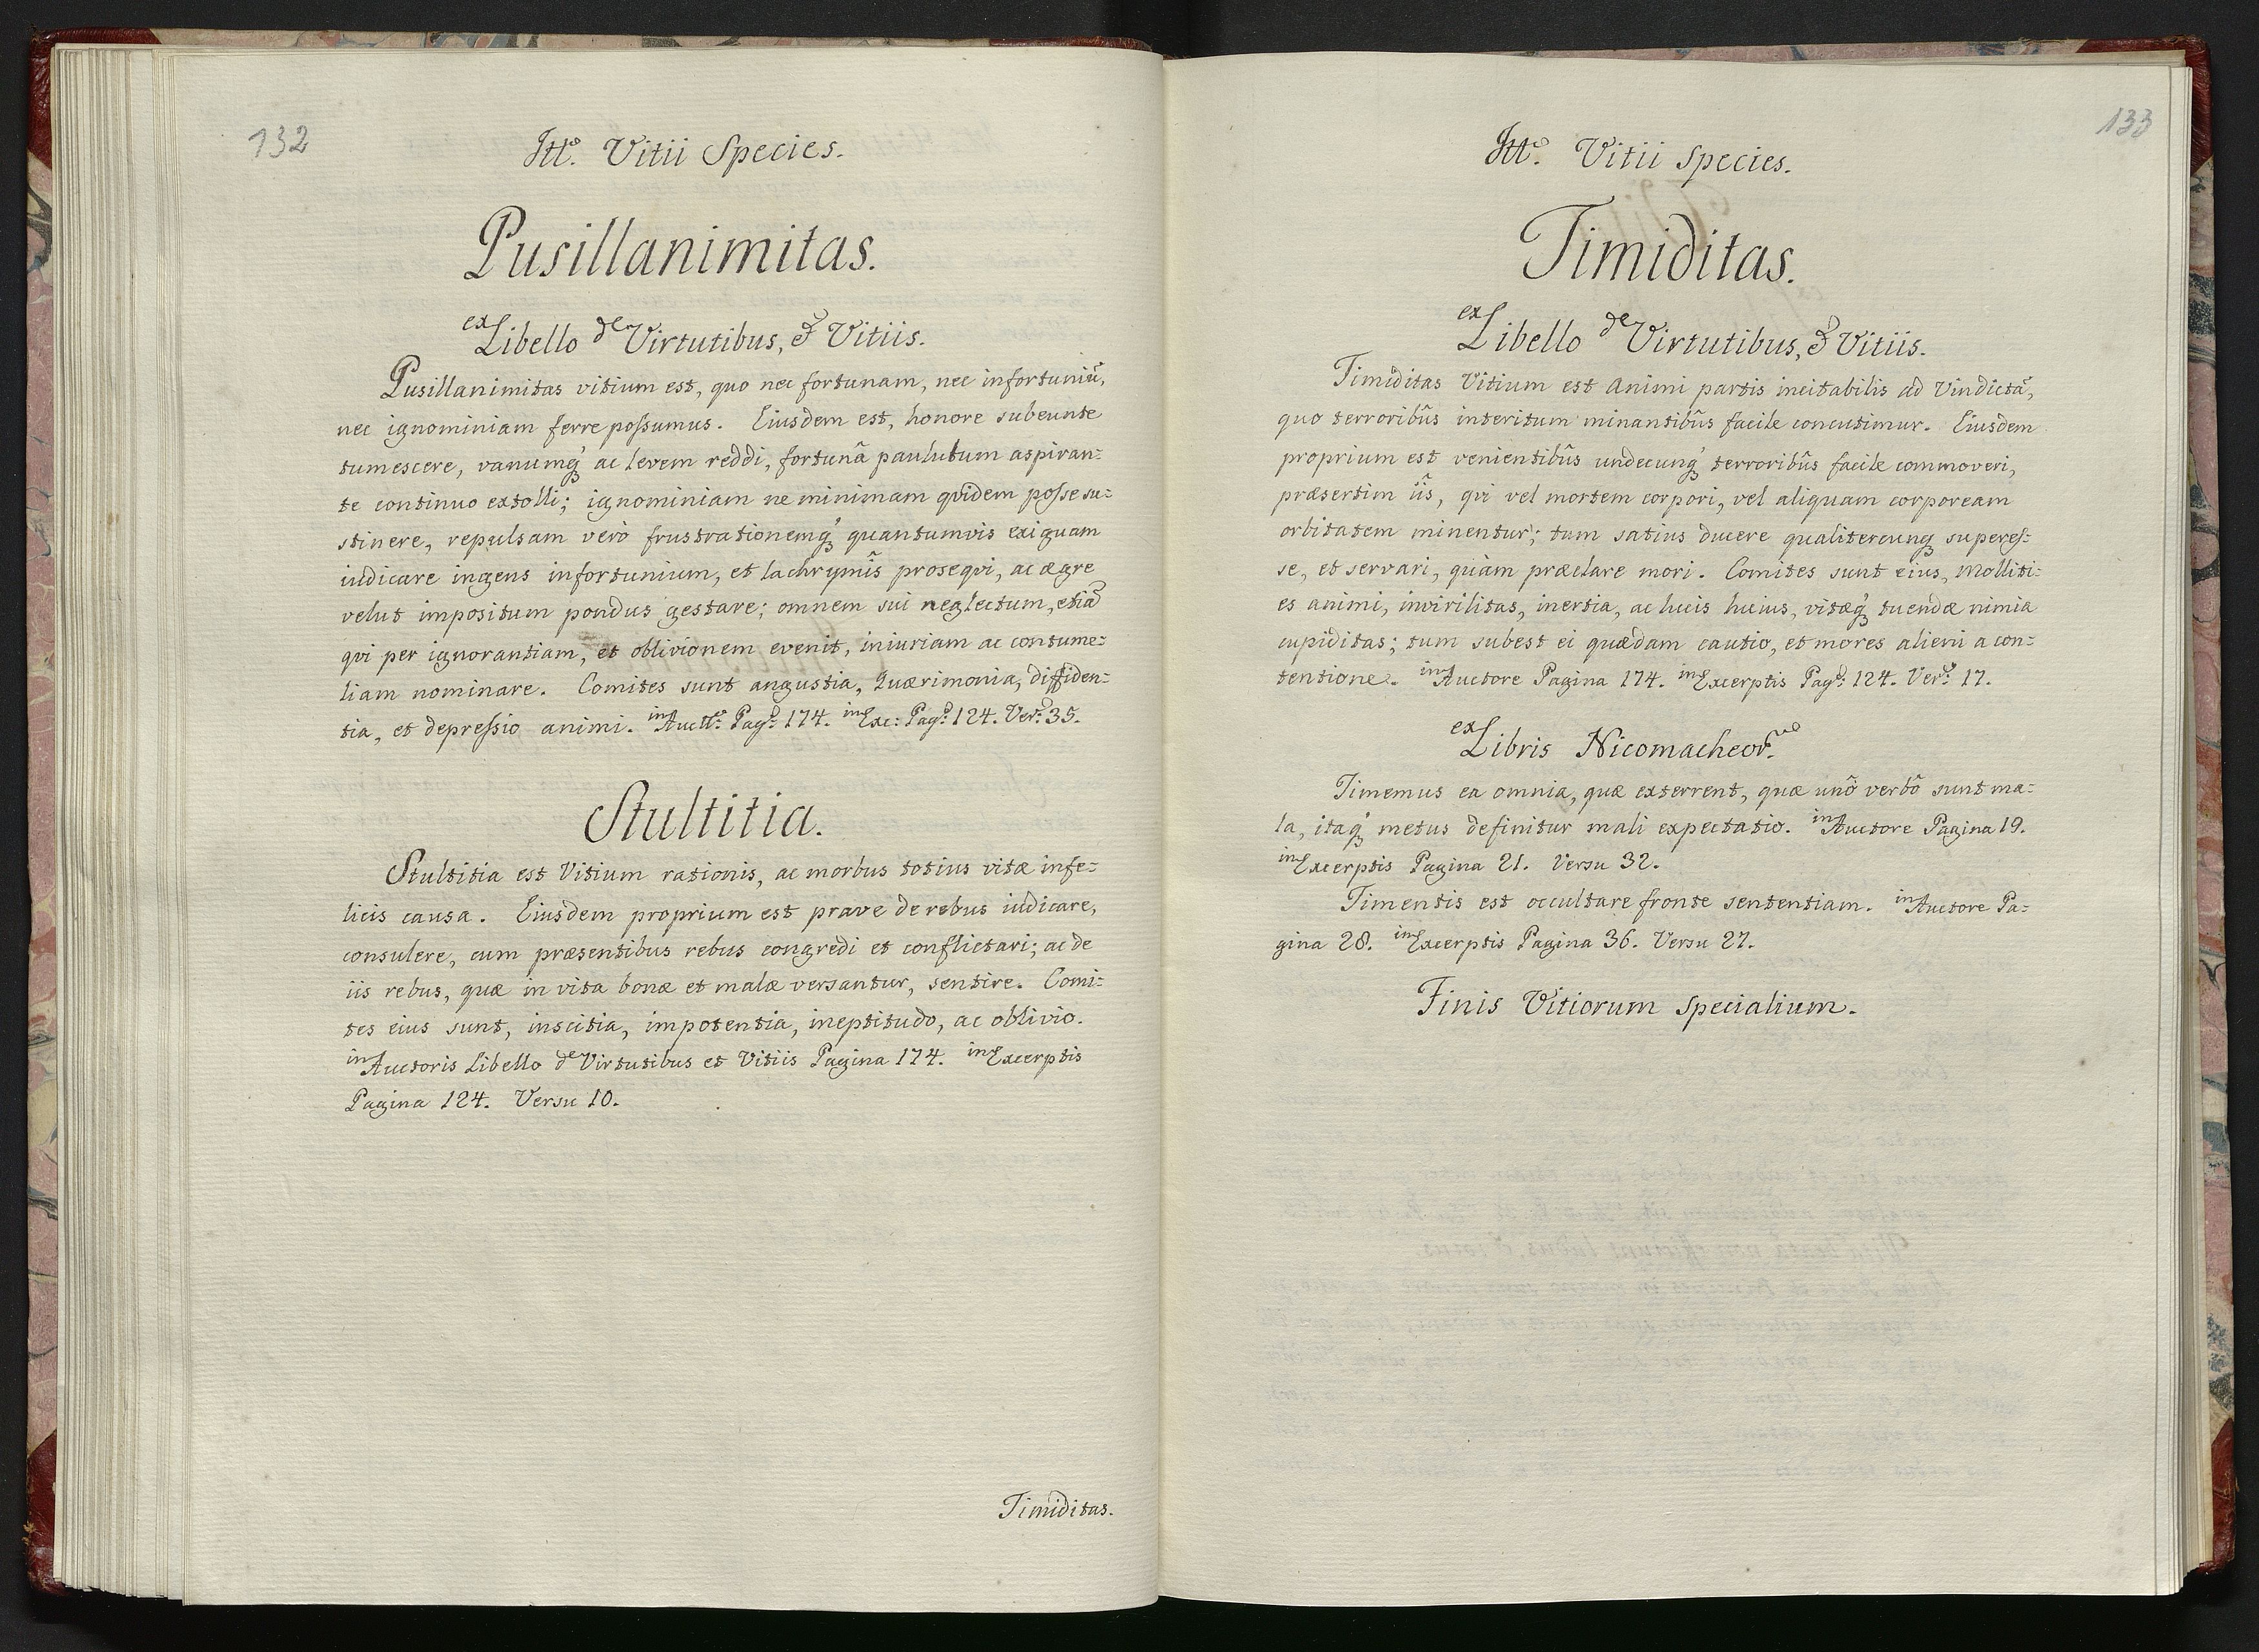 132
Itt.º Vitii Species.
Pusillanimitas.
ex Libello de Virtutibus, & Vitiis.
Pusillanimitas vitium est, quo nec fortunam, nec infortuniũ,
nec ignominiam ferre possumus. Eiusdem est, honore subeunte
tumescere, vanumq́ ac levem reddi, fortunâ paululum aspiran=
te continuo extolli; ignominiam ne minimam qvidem posse su=
stinere, repulsam verò frustrationemq́ quantumvis exiguam
iudicare ingens infortunium, et lachrymîs proseqvi, ac ægre
velut impositum pondus gestare; omnem sui neglectum, etiã
qvi per ignorantiam, et oblivionem evenit, iniuriam ac contume=
liam nominare. Comites sunt angustia, Quærimonia, diffiden=
tia, et depressio animi. in Auctᵉ: Pagᵃ: 174. in Exc: Pagᵃ: 124. Verᵘ: 35.
Stultitia.
Stultitia est Vitium rationis, ac morbus totius vitæ infe=
licis causa. Eiusdem proprium est prave de rebus iudicare,
consulere, cum præsentibus rebus congredi et conflictari; ac de
iis rebus, quæ in vita bonæ et malæ versantur, sentire. Comi=
tes eius sunt, inscitia, impotentia, ineptitudo, ac oblivio.
in Auctoris Libello de Virtutibus et Vitiis Pagina 174. in Excerptis
Pagina 124. Versu 10.
Timiditas.
133
Itt.º Vitii Species.
Timiditas.
ex Libello de Virtutibus, & Vitiis.
Timiditas Vitium est Animi partis incitabilis ad Vindictã,
quo terroribûs interitum minantibûs facile concutimur. Eiusdem
proprium est venientibûs undecunq́ terroribûs facile commoveri,
præsertim iîs, qvi vel mortem corpori, vel aliquam corpoream
orbitatem minentur; tum satius ducere qualitercunq́ superes=
se, et servari, quàm præclare mori. Comites sunt eius, Molliti=
es animi, invirilitas, inertia, ac lucis huius, vitæq́ tuendæ nimia
cupiditas; tum subest ei quædam cautio, et mores alieni a con=
tentione. in Auctore Pagina 174. in Excerptis Pagᵃ: 124. Verᵘ: 17.
ex Libris Nicomacheor.ᵘᵐ
Timemus ea omnia, quæ exterrent, quæ unô verbô sunt ma=
la, itaq́ metus definitur mali expectatio. in Auctore Pagina 19.
in Excerptis Pagina 21. Versu 32.
Timentis est occultare fronte sententiam. in Auctore Pa=
gina 28. in Excerptis Pagina 36. Versu 27.
Finis Vitiorum Specialium.